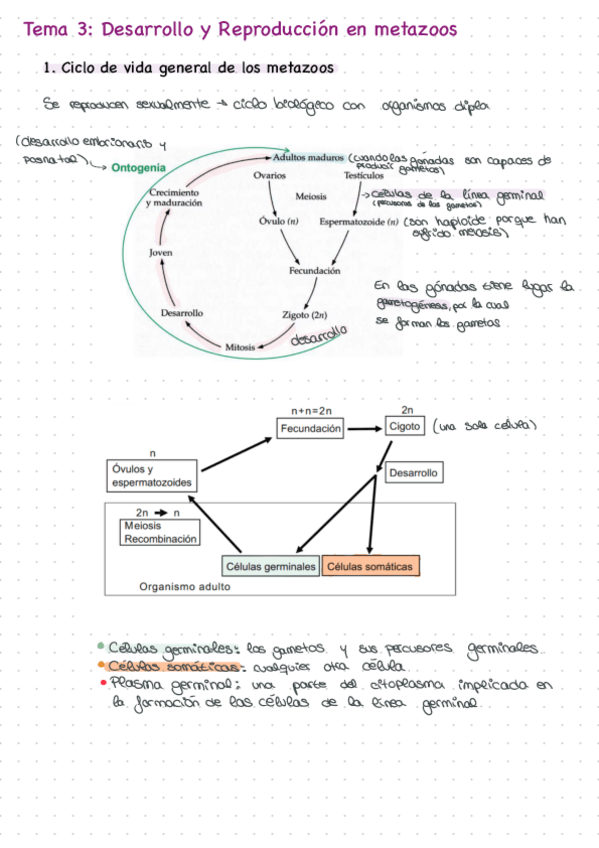 Tema 3: Desarrollo y Reproducción en metazoos
1. Ciclo de vida general de los metazoos
Se reproducen sexualmente → ciclo biológico con organismos dipla
(desarrollo embrionario y
posnatal)
Ontogenia
Adultos maduros (cuando las gónadas son capaces de
producir gametos)
Ovarios
Testículos
Crecimiento
y maduración
Meiosis
→ células de la línea germinal
(precursoras de los gametos)
Óvulo (n)
Espermatozoide (n) (son haploide porque han
sufrido meiosis)
Joven
Fecundación
En las gónadas tiene lugar la
gametogénesis, por la cual
se forman los gametos
Desarrollo
Zigoto (2n)
desarrollo
Mitosis
n+n=2n
Fecundación
2n
Cigoto (una sola célula)
n
Óvulos y
espermatozoides
Desarrollo
2n → n
Meiosis
Recombinación
Células germinales
Células somáticas
Organismo adulto
• Células germinales: los gametos y sus percusores germinales.
• Células somáticas: cualquier otra célula.
• Plasma germinal: una parte del citoplasma implicada en
la formación de las células de la línea germinal.